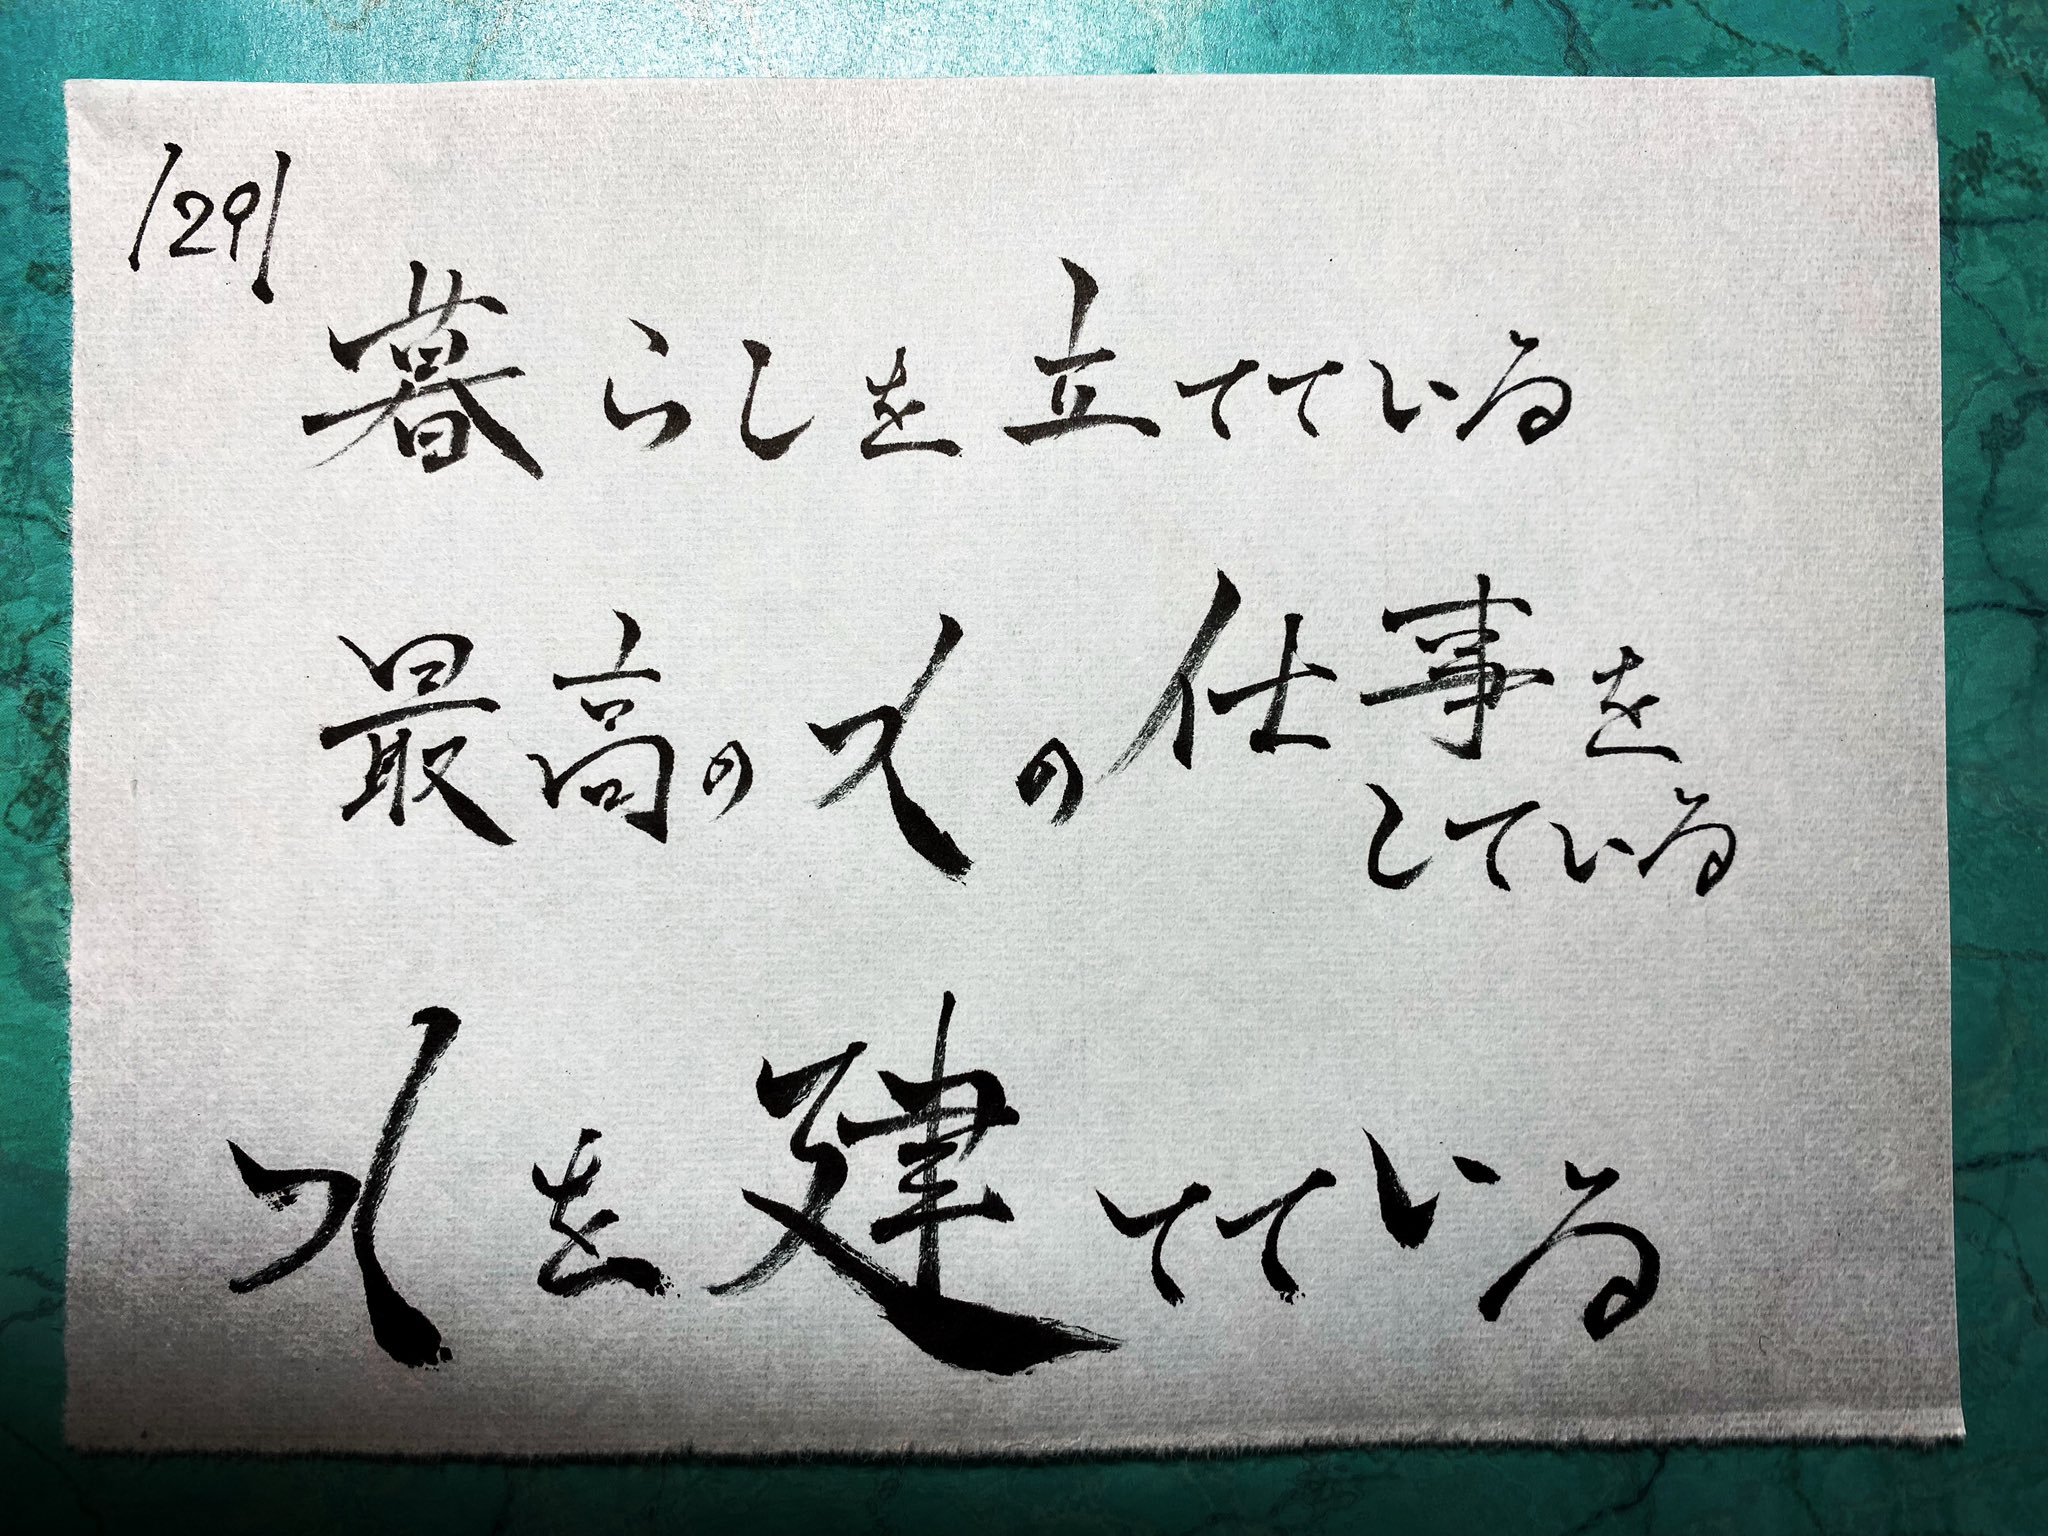 1291
暮らしを立てている
最高の の仕事を
している
を建てている